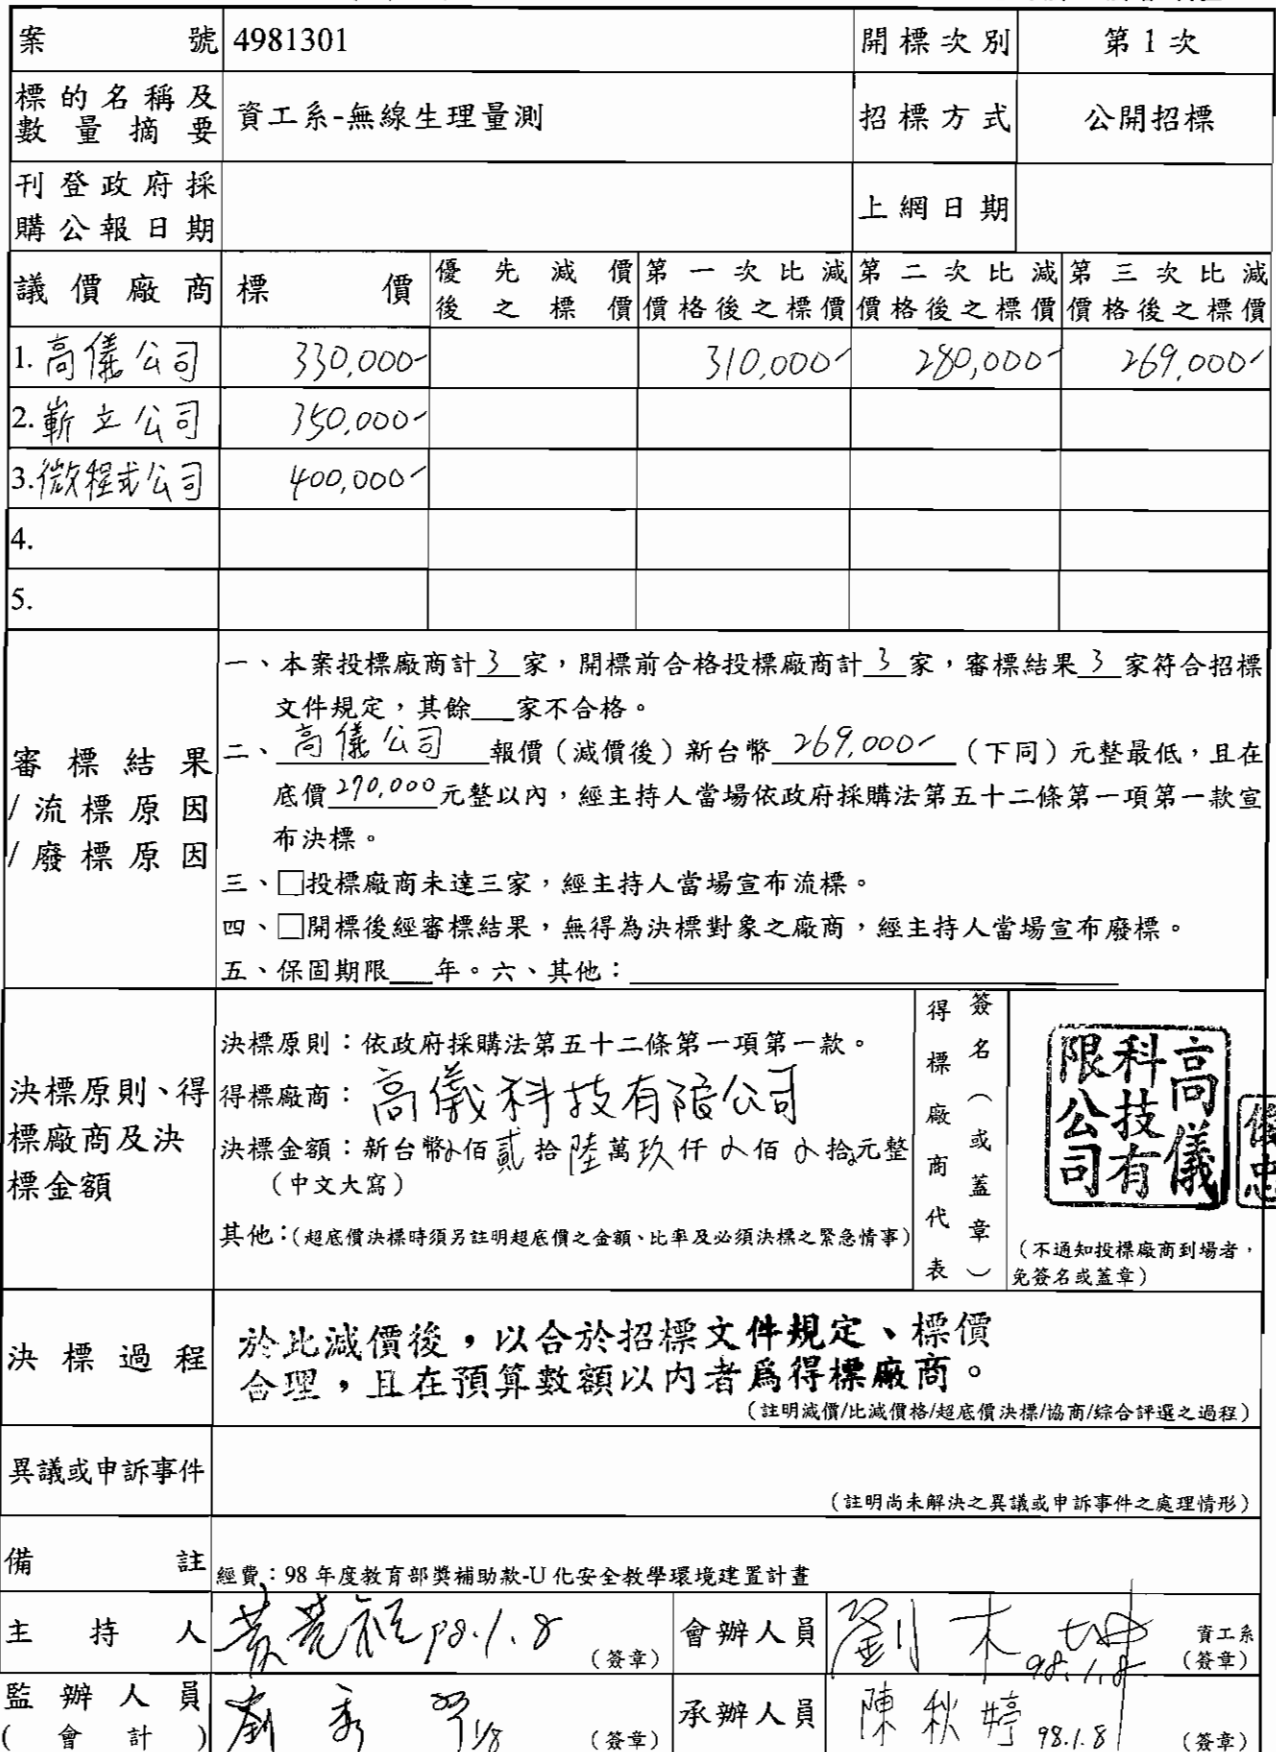 案號 4981301 開標次別 第1次
標的名稱及數量摘要 資工系-無線生理量測 招標方式 公開招標
刊登政府採購公報日期 上網日期
議價廠商 標價 優先減價後之標價 第一次比減價格後之標價 第二次比減價格後之標價 第三次比減價格後之標價
1. 高儀公司 330,000- 310,000- 280,000- 269,000-
2. 嶄立公司 350,000-
3. 微程式公司 400,000-
4.
5.
審標結果/流標原因/廢標原因
一、本案投標廠商計 3 家，開標前合格投標廠商計 3 家，審標結果 3 家符合招標
文件規定，其餘___家不合格。
二、高儀公司 報價（減價後）新台幣 269,000- （下同）元整最低，且在
底價 270,000 元整以內，經主持人當場依政府採購法第五十二條第一項第一款宣
布決標。
三、□投標廠商未達三家，經主持人當場宣布流標。
四、□開標後經審標結果，無得為決標對象之廠商，經主持人當場宣布廢標。
五、保固期限___年。六、其他：
決標原則、得標廠商及決標金額
決標原則：依政府採購法第五十二條第一項第一款。
得標廠商：高儀科技有限公司
決標金額：新台幣 佰貳拾陸萬玖仟 佰 拾 元整
（中文大寫）
其他：（超底價決標時須另註明超底價之金額、比率及必須決標之緊急情事）
得標廠商代表
簽名（或蓋章）
高儀科技有限公司
（不通知投標廠商到場者，
免簽名或蓋章）
決標過程
於比減價後，以合於招標文件規定、標價
合理，且在預算數額以內者為得標廠商。
（註明減價/比減價格/超底價決標/協商/綜合評選之過程）
異議或申訴事件
（註明尚未解決之異議或申訴事件之處理情形）
備註 經費：98 年度教育部獎補助款-U 化安全教學環境建置計畫
主持人 98.1.8 （簽章） 會辦人員 劉木 98.1.8 資工系（簽章）
監辦人員（會計） 劉秀 1/8 （簽章） 承辦人員 陳秋婷 98.1.8 （簽章）